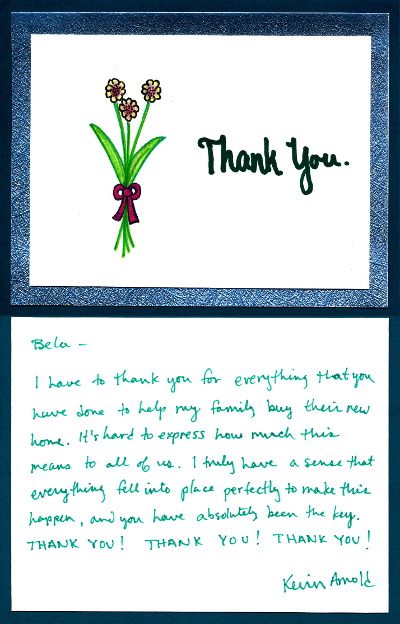 Thank You.
Bela -
I have to thank you for everything that you
have done to help my family buy their new
home. It's hard to express how much this
means to all of us. I truly have a sense that
everything fell into place perfectly to make this
happen, and you have absolutely been the key.
THANK YOU! THANK YOU! THANK YOU!
Kevin Arnold